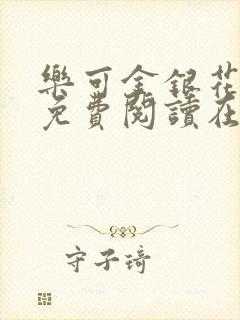 樂可金銀花
免費閱讀在
守子琦